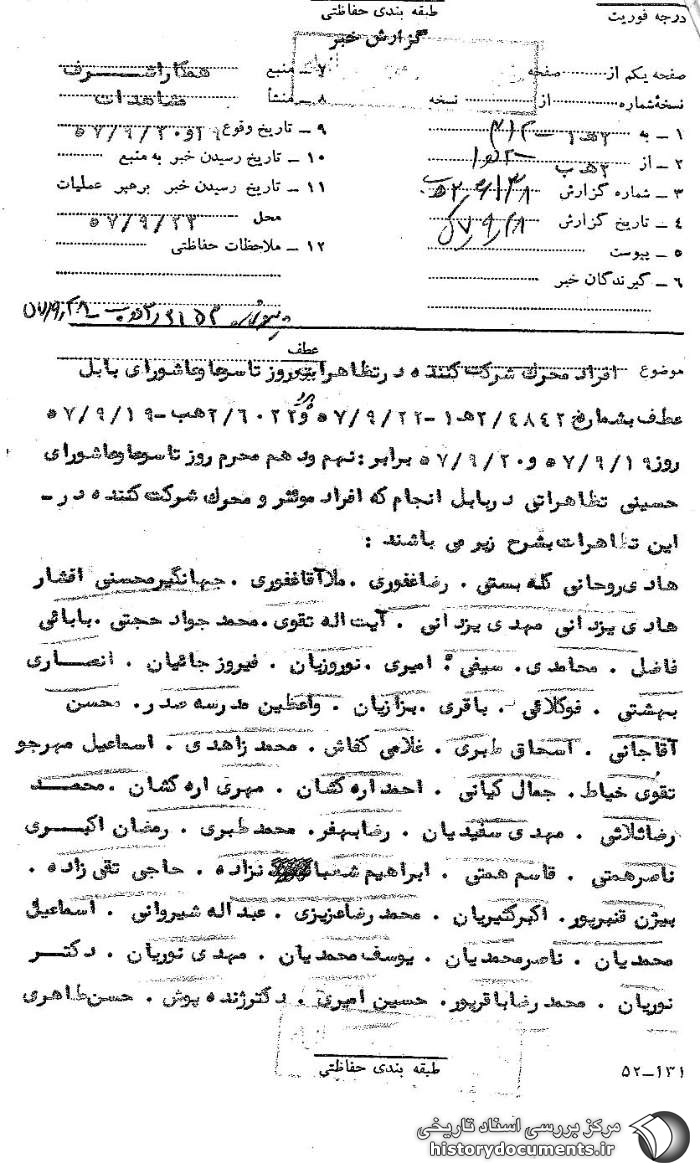 درجه فوریت
طبقه بندی حفاظتی
گزارش خبر
صفحه یکم از صفحه
نسخه شماره از نسخه
۱ ـ به
۲ ـ از
۳ ـ شماره گزارش
۴ ـ تاریخ گزارش
۵ ـ پیوست
۶ ـ گیرندگان خبر
۷ ـ منبع همکار اشرف
۸ ـ منشأ مشاهدات
۹ ـ تاریخ وقوع ۱۹و۵۷/۹/۲۰
۱۰ ـ تاریخ رسیدن خبر به منبع
۱۱ ـ تاریخ رسیدن خبر برهبر عملیات
محل ۵۷/۹/۲۳
۱۲ ـ ملاحظات حفاظتی
عطف
موضوع افراد محرك شركت كننده درتظاهرات روز تاسوعاوعاشورای بابل
عطف بشماره ۲/٤۸٤۲ه۱-۵۷/۹/۲۲ و ۲/۶۰۲۲هب-۵۷/۹/۱۹
روز۵۷/۹/۱۹ و۵۷/۹/۲۰ برابر: نهم ودهم محرم روز تاسوعاوعاشورای
حسینی تظاهراتی دربابل انجام که افراد موثر و محرك شركت كننده در ـ
این تظاهرات بشرح زیر می باشند :
هادی روحانی گله بستی . رضاغفوری . ملاآقاغفوری . جهانگیرمحسنی افشار
هادی یزدانی مهدی یزدانی . آیت اله تقوی . محمد جواد حجتی . بابائی
فاضل . محامدی . سیفی . امیری . نوروزیان . فیروز جائیان . انصاری
بهشتی . فوکلائی . باقری . بزازیان . واعظین مدرسه صدر . محسن
آقاجانی . اسحاق طبری . غلامی کفاش . محمد زاهدی . اسماعیل مهرجو
تقوی خیاط . جمال کیانی . احمد اره کشان . مهری اره کشان . محمد
رضاثلاثی . مهدی سفیدیان . رضابهفر . محمد طبری . رمضان اکبری
ناصرهمتی . قاسم همتی . ابراهیم شعبا نزاده . حاجی تقی زاده .
بیژن قنبرپور . اکبرکثیریان . محمد رضاعزیزی . عبداله شیروانی . اسماعیل
محمدیان . ناصرمحمدیان . یوسف محمدیان . مهدی نوریان . دکتر
نوریان . محمد رضاباقرپور . حسین امیری . دکترزنده پوش . حسن طاهری
طبقه بندی حفاظتی
۵۲-۱۳۱
مرکز بررسی اسناد تاریخی
historydocuments.ir